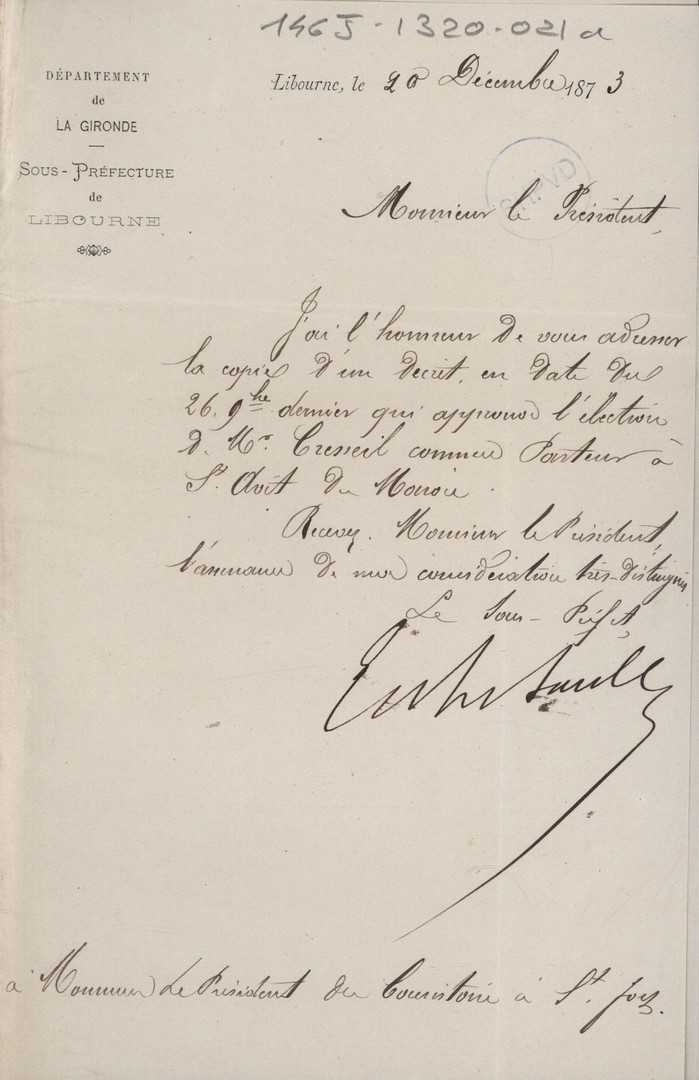 146J-1320-021a
DÉPARTEMENT
de
LA GIRONDE
SOUS-PRÉFECTURE
de
LIBOURNE
Libourne, le 20 Décembre 1873
SHPVD
Monsieur le Président,
J'ai l'honneur de vous adresser
la copie d'un décret, en date du
26. 9bre dernier qui approuve l'élection
de Mr. Cresseil comme Pasteur à
St. Avit du Moiron.
Recevez, Monsieur le Président,
l'assurance de ma considération très-distinguée
Le Sous-Préfet,
à Monsieur Le Président du Consistoire à St. Foy.